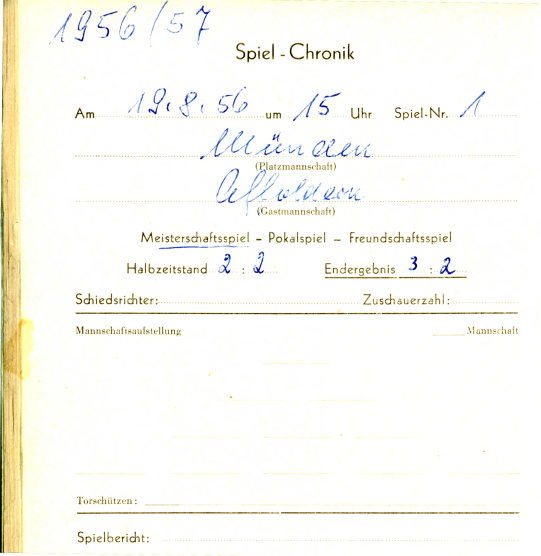 1956/57
Spiel - Chronik
Am 19.8.56 um 15 Uhr Spiel-Nr. 1
Münden
(Platzmannschaft)
Affoldern
(Gastmannschaft)
Meisterschaftsspiel - Pokalspiel - Freundschaftsspiel
Halbzeitstand 2 : 2 Endergebnis 3 : 2
Schiedsrichter: Zuschauerzahl:
Mannschaftsaufstellung Mannschaft
Torschützen:
Spielbericht: